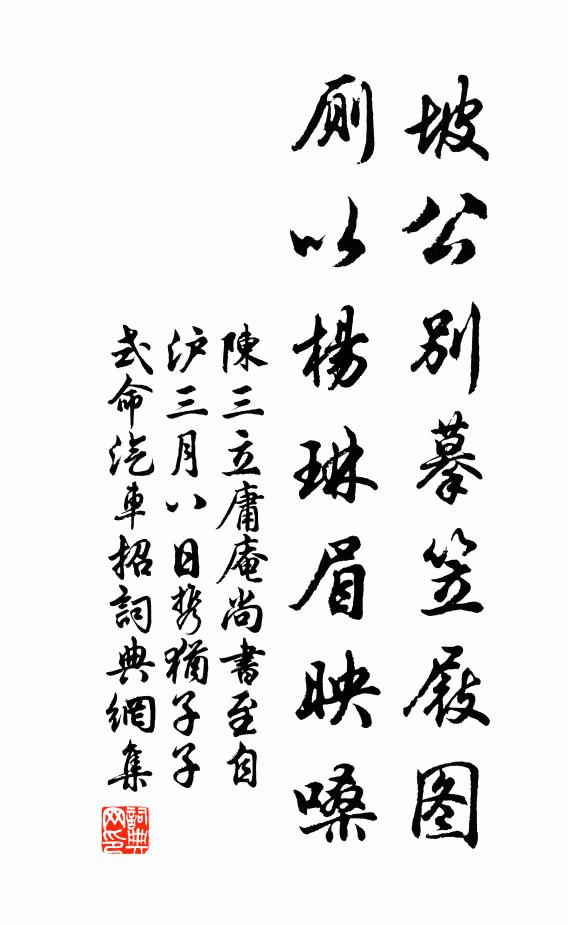 坡公别摹笠屐图
厕以杨琳眉映嗓
陳三立庸庵尚書至自
沪三月八日携猶子子
式命汽車招詞典網集
詞典网印